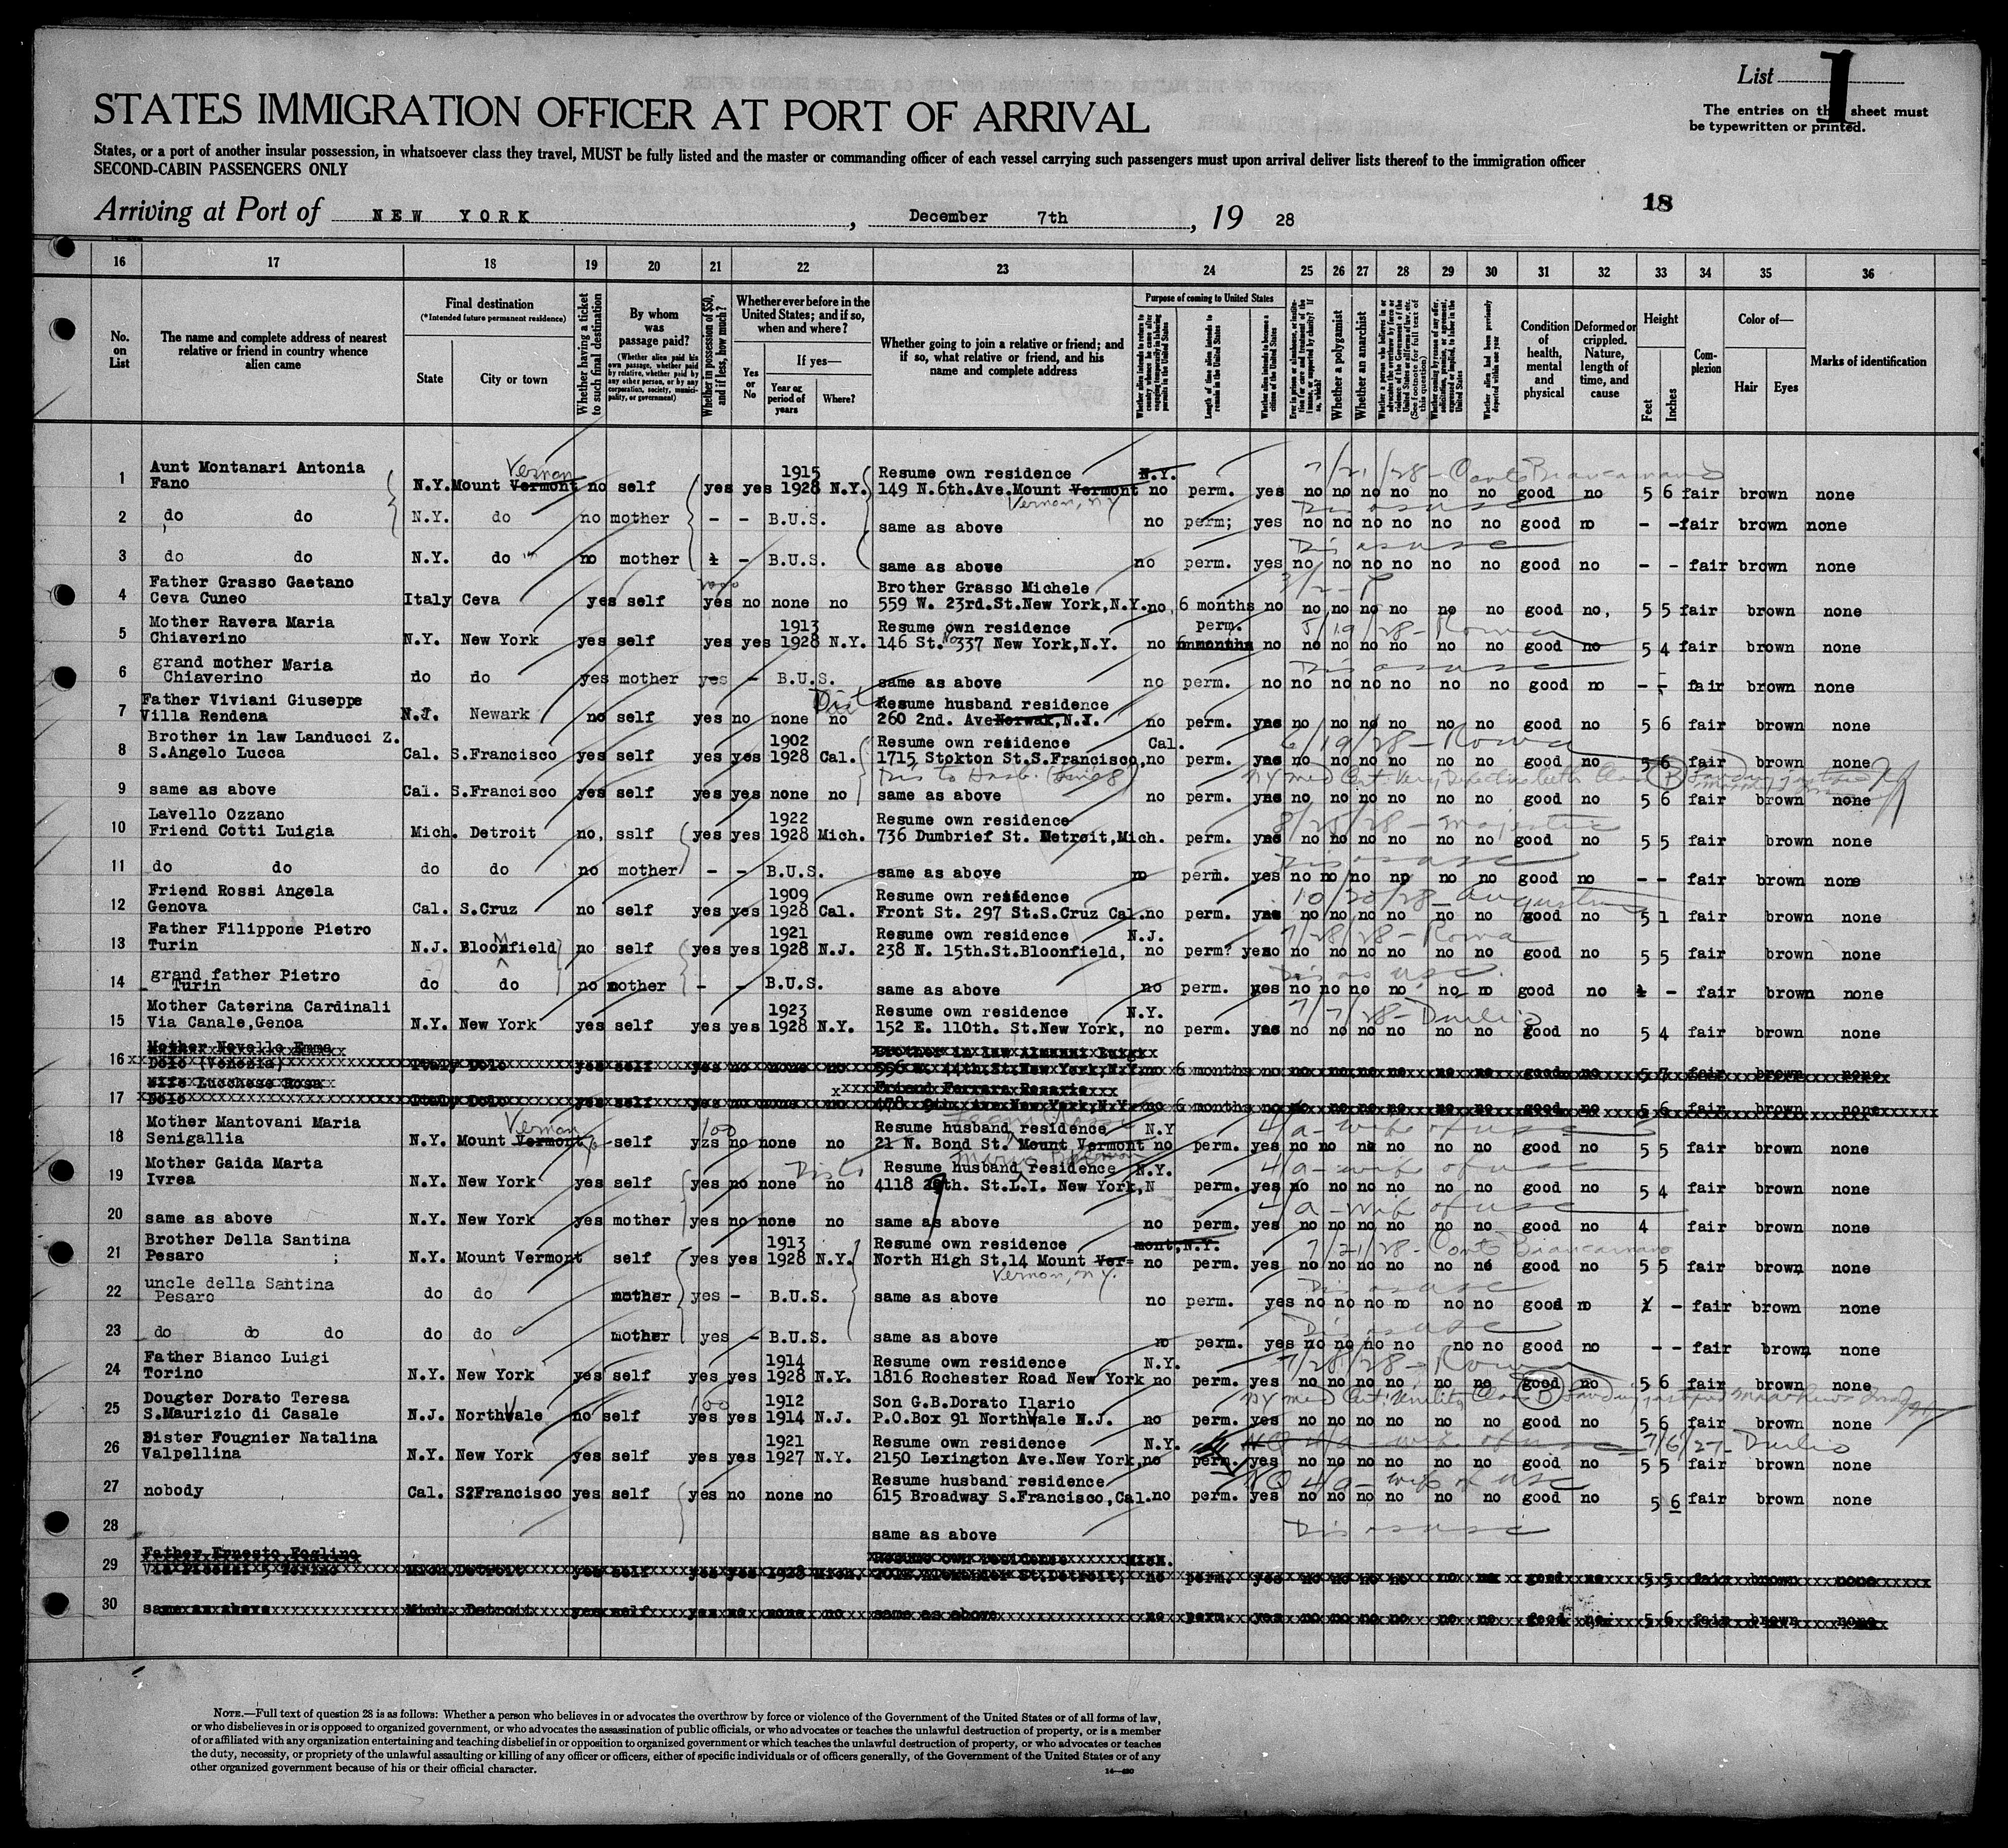 List 1
The entries on this sheet must
be typewritten or printed.
STATES IMMIGRATION OFFICER AT PORT OF ARRIVAL
States, or a port of another insular possession, in whatsoever class they travel, MUST be fully listed and the master or commanding officer of each vessel carrying such passengers must upon arrival deliver lists thereof to the immigration officer
SECOND-CABIN PASSENGERS ONLY
18
Arriving at Port of NEW YORK, December 7th, 19 28
16 17 18 19 20 21 22 23 24 25 26 27 28 29 30 31 32 33 34 35 36
No. on List
The name and complete address of nearest relative or friend in country whence alien came
Final destination
(*Intended future permanent residence)
State City or town
Whether having a ticket to such final destination
By whom was passage paid?
(Whether alien paid his own passage, whether paid by relative, whether paid by any other person, or by any corporation, society, municipality, or government)
Whether in possession of $50, and if less, how much?
Whether ever before in the United States; and if so, when and where?
Yes or No
If yes—
Year or period of years
Where?
Whether going to join a relative or friend; and if so, what relative or friend, and his name and complete address
Purpose of coming to United States
Length of time alien intends to remain in the United States
Whether alien intends to become a citizen of the United States
Whether a polygamist
Whether an anarchist
Condition of health, mental and physical
Deformed or crippled. Nature, length of time, and cause
Height
Feet Inches
Complexion
Color of—
Hair Eyes
Marks of identification
1 Aunt Montanari Antonia Vernon 1915 Resume own residence N.Y. 7/21/28 - Conte Biancamano
Fano N.Y. Mount Vermont no self yes yes 1928 N.Y. 149 N.6th.Ave.Mount Vermont no perm. yes no no no no no no good no 5 6 fair brown none
Vernon, NY
2 do do N.Y. do no mother - - B.U.S. same as above no perm; yes no no no no no no good no - - fair brown none
3 do do N.Y. do no mother - B.U.S. same as above no perm. yes no no no no no no good no - - fair brown none
4 Father Grasso Gaetano Brother Grasso Michele
Ceva Cuneo Italy Ceva yes self yes no none no 559 W. 23rd.St.New York,N.Y. no 6 months no no no no no no no good no, 5 5 fair brown none
5 Mother Ravera Maria 1913 Resume own residence perm. 5/19/28 - Roma
Chiaverino N.Y. New York yes self yes yes 1928 N.Y. 146 St. No 337 New York,N.Y. no 6 months no no no no no no no good no 5 4 fair brown none
6 grand mother Maria
Chiaverino do do yes mother yes - B.U.S. same as above no perm. no no no no no no no good no - - fair brown none
7 Father Viviani Giuseppe Resume husband residence
Villa Rendena N.J. Newark no self yes no none no 260 2nd. Ave Norwak,N.Y. no perm. no no no no no no good no 5 6 fair brown none
8 Brother in law Landucci Z. 1902 Resume own residence Cal. 6/19/28 - Roma
S.Angelo Lucca Cal. S.Francisco yes self yes yes 1928 Cal. 1715 Stokton St.S.Francisco, no perm. no no no no no no good no 5 6 fair brown none
9 same as above Cal. S.Francisco yes self yes yes none no same as above no perm. no no no no no no good no 5 6 fair brown none
10 Lavello Ozzano 1922 Resume own residence 8/28/28 - Majestic
Friend Cotti Luigia Mich. Detroit no, sslf yes yes 1928 Mich. 736 Dumbrief St. Detroit,Mich. perm. no no no no no no good no 5 5 fair brown none
11 do do do do no mother - - B.U.S. same as above no perm. yes no no no no no no good no - - fair brown none
12 Friend Rossi Angela 1909 Resume own residence 10/20/28 - Augustus
Genova Cal. S.Cruz no self yes yes 1928 Cal. Front St. 297 St.S.Cruz Cal. no perm. no no no no no no good no 5 1 fair brown none
13 Father Filippone Pietro 1921 Resume own residence N.J. 7/28/28 - Roma
Turin N.J. Bloomfield no self yes yes 1928 N.J. 238 N. 15th.St.Bloonfield, no perm? yes no no no no no no good no 5 5 fair brown none
14 grand father Pietro
Turin do do no mother - - B.U.S. same as above no perm. yes no no no no no no good no - fair brown none
15 Mother Caterina Cardinali 1923 Resume own residence N.Y. 7/7/28 - Duilio
Via Canale,Genoa N.Y. New York yes self yes yes 1928 N.Y. 152 E. 110th. St.New York, no perm. no no no no no no good no 5 4 fair brown none
16 Mother Novello Emma Brother in law
Dolo (Venezia) Italy Dolo yes self yes no none no 556 W. 44th.St.New York,N.Y. no 6 months no no no no no no no good no 5 7 fair brown none
17 Wife Luchese Rosa Friend Ferrara Rosario
Dolo Italy Dolo yes self yes no none no New York,N.Y. no 6 months no no no no no no no good no 5 6 fair brown none
18 Mother Mantovani Maria Vernon 100 Resume husband residence N.Y 4/a - wife of usc
Senigallia N.Y. Mount Vermont self yzs no none no 21 N. Bond St. Mount Vermont no perm. yes no no no no no no good no 5 5 fair brown none
19 Mother Gaida Marta Resume husband residence N.Y. 4/a - wife of usc
Ivrea N.Y. New York yes self yes no none no 4118 29th. St.L.I. New York,N perm. yes no no no no no no good no 5 4 fair brown none
20 same as above N.Y. New York yes mother yes no none no same as above no perm. yes no no no no no no good no 4 fair brown none
4/a - wife of usc
21 Brother Della Santina 1913 Resume own residence mont,N.Y. 7/21/28 - Conte Biancamano
Pesaro N.Y. Mount Vermont self yes yes 1928 N.Y. North High St.14 Mount Ver= no perm. yes no no no no no no good no 5 5 fair brown none
Vernon, n.y.
22 uncle della Santina
Pesaro do do mother yes - B.U.S. same as above no perm. yes no no no no no no good no - fair brown none
23 do do do do do mother yes - B.U.S. same as above no perm. yes no no no no no no good no - - fair brown none
24 Father Bianco Luigi 1914 Resume own residence N.Y. 7/28/28 - Roma
Torino N.Y. New York yes self yes yes 1928 N.Y. 1816 Rochester Road New York no perm. yes no no no no no no good no 5 6 fair brown none
25 Dougter Dorato Teresa 100 1912 Son G.B.Dorato Ilario
S.Maurizio di Casale N.J. Northvale no self yes yes 1914 N.J. P.O.Box 91 Northvale N.J. no perm. yes no no no no no no good no 5 6 fair brown none
26 Dister Fougnier Natalina 1921 Resume own residence N.Y. 7/6/27 - Duilio
Valpellina N.Y. New York yes self yes yes 1927 N.Y. 2150 Lexington Ave.New York, no perm. yes no no no no no no good no 5 5 fair brown none
27 Resume husband residence NQ 4/a - wife of USC
nobody Cal. S?Francisco yes self yes no none no 615 Broadway S.Francisco,Cal. no perm. yes no no no no no no good no 5 6 fair brown none
28 same as above
29 Father Ernesto Foglino Resume own residence Mich.
Torino Mich. Detroit yes self yes yes 1928 Mich. St.Detroit, no perm. yes no no no no no no good no 5 5 fair brown none
30 same as above Mich. Detroit yes self yes no none no same as above no perm. yes no no no no no no food no 5 6 fair brown none
NOTE.—Full text of question 28 is as follows: Whether a person who believes in or advocates the overthrow by force or violence of the Government of the United States or of all forms of law,
or who disbelieves in or is opposed to organized government, or who advocates the assassination of public officials, or who advocates or teaches the unlawful destruction of property, or is a member
of or affiliated with any organization entertaining and teaching disbelief in or opposition to organized government or which teaches the unlawful destruction of property, or who advocates or teaches
the duty, necessity, or propriety of the unlawful assaulting or killing of any officer or officers, either of specific individuals or of officers generally, of the Government of the United States or of any
other organized government because of his or their official character.
14—480